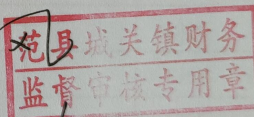 范县城关镇财务
监督审核专用章